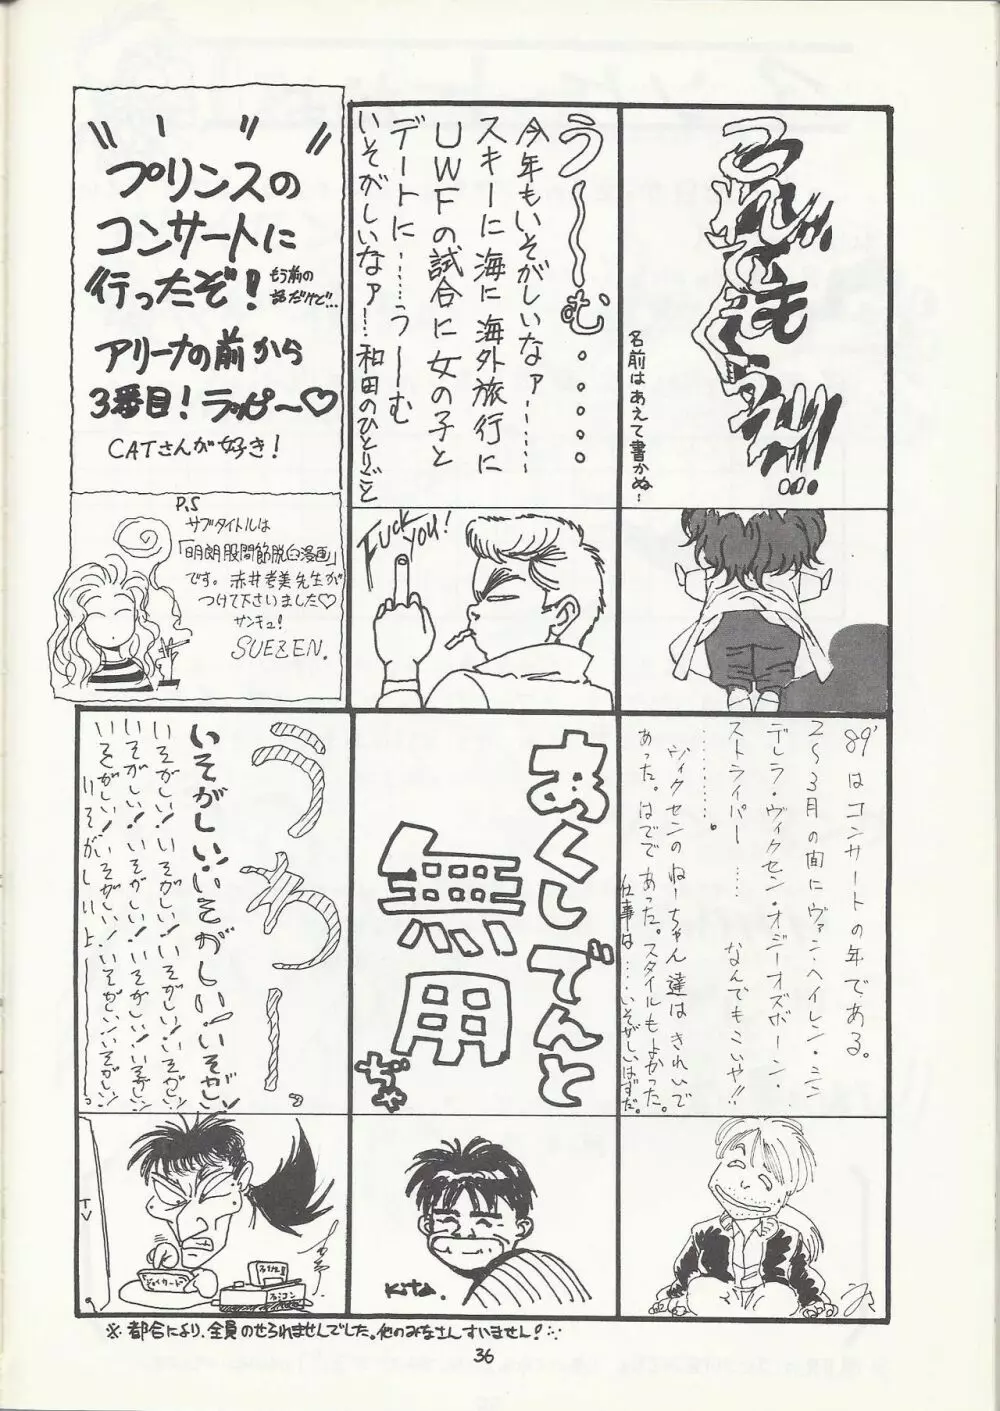 つれてもらう!!!...
名前はあえて書かぬ!
う〜〜む。。。。。
今年もいそがしいなァ……
スキーに海に海外旅行に
UWFの試合に女の子と
デートに……うーむ
いそがしいなァ…
和田のひとりごと
プリンスの
コンサートに
行ったぞ!
もう前の
話だけど…
アリーナの前から
3番目!ラッピー〜♡
CATさんが好き!
Fuck
you!
P.S
サブタイトルは
「明朗股間節脱臼漫画」
です。赤井孝美先生が
つけて下さいました♡
サンキュ!
SUEZEN.
89'はコンサートの年である。
2〜3月の間にヴァン・ヘイレン・シン
デレラ・ヴィクセン・オジーオズボーン・
ストライパー…… なんでもこいや!!
…………。
ヴィクセンのねーちゃん達はきれいで
あった。はでであった。スタイルもよかった。
仕事は……いそがしいはずだ。
あくしでんと
無用
ぢゃ
うわー。
いそがしい!いそがしい!いそがしい!
いそがしい!いそがしい!いそがしい!いそがしい!
いそがしい!いそがしい!いそがしい!いそがしい!
いそがしい!いそがしい!いそがしい!いそがしい!
いそがしいよーーーっ
Kita.
TV
ジョイカード
ファミコン
※都合により、全員のせられませんでした。他のみなさんすいません!
36